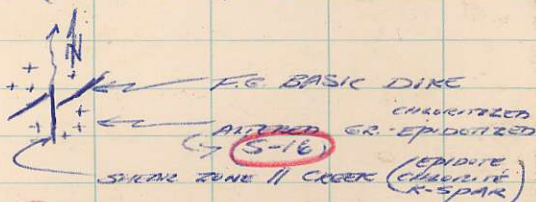 N
F.G BASIC DIKE
CHLORITIZED
ALTERED GR. - EPIDOTIZED
S-16
SHEAR ZONE // CREEK (EPIDOTE
CHLORITE
K-SPAR)